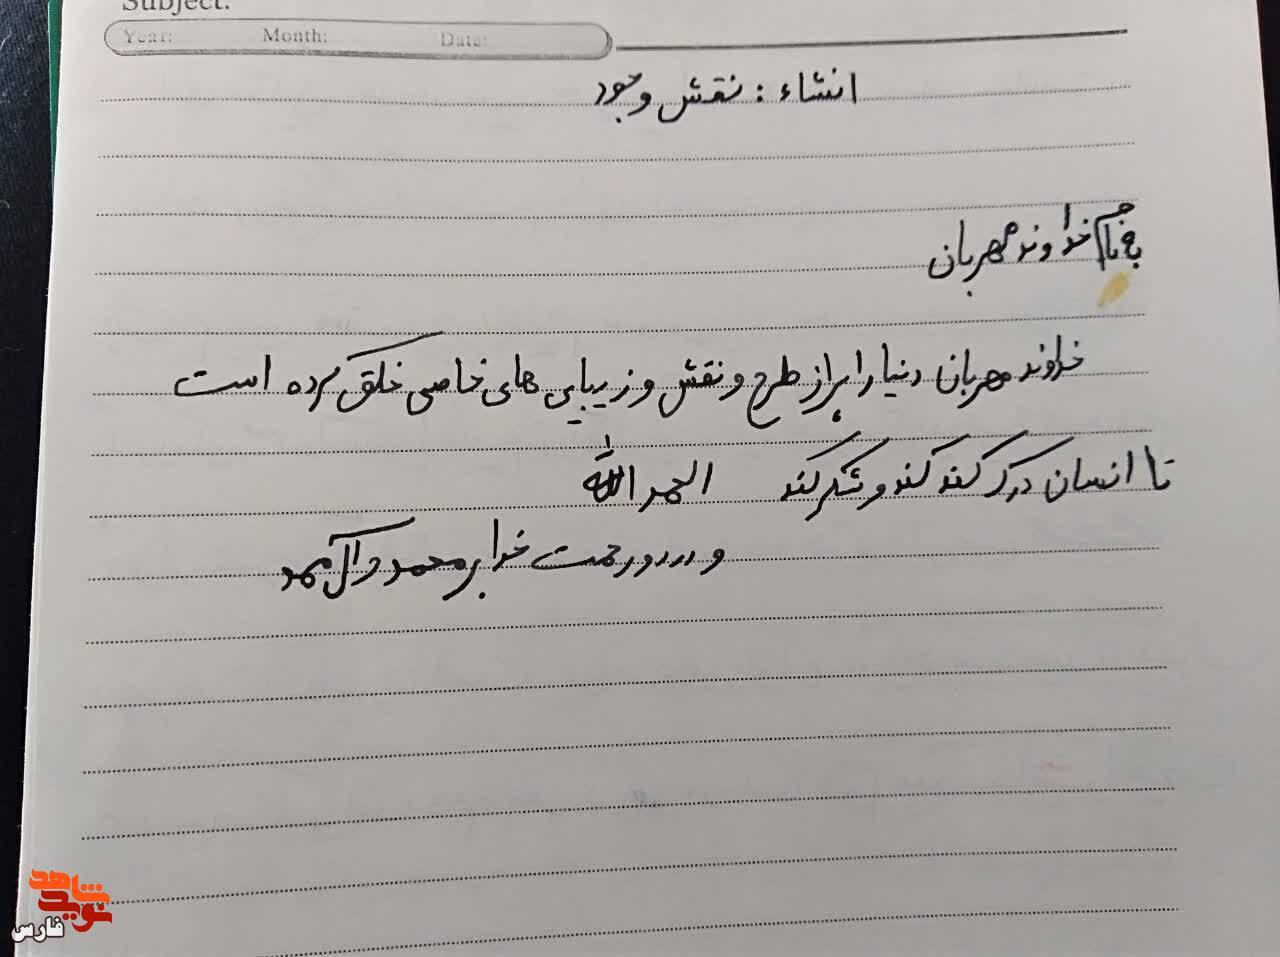 Subject:
Year: Month: Date:
انشاء : نقش وجود
به نام خداوند مهربان
خداوند مهربان دنیا را پر از طرح و نقش و زیبایی های خاصی خلق کرده است
تا انسان درک کند کند و شکر کند الحمد الله
و درود رحمت خدا بر محمد و آل محمد
نوید شاهد
فارس